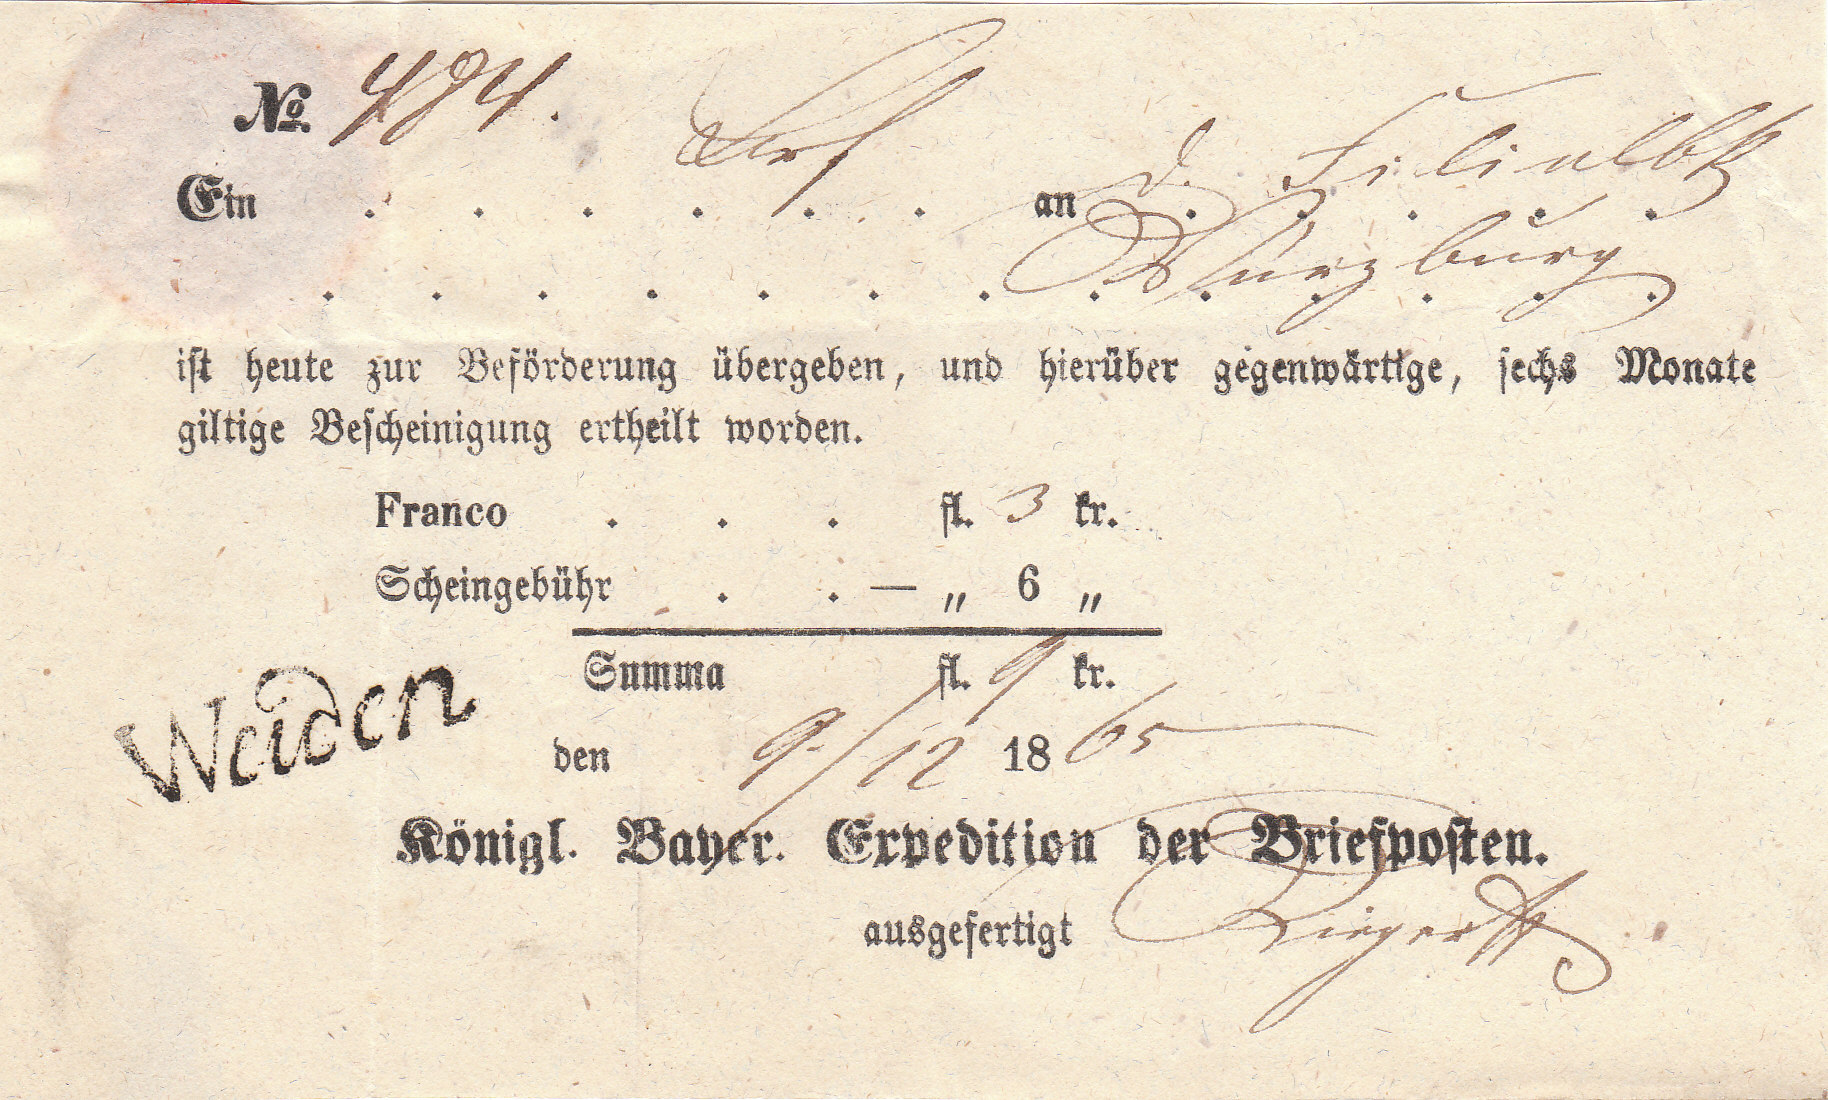 No. 494.
Ein . . . . . . an d. Filialbk
Würzburg
ist heute zur Beförderung übergeben, und hierüber gegenwärtige, sechs Monate
giltige Bescheinigung ertheilt worden.
Franco . . . fl. 3 kr.
Scheingebühr . . — „ 6 „
Summa fl. 9 kr.
Weiden
den 9/12 1865
Königl. Bayer. Expedition der Briefposten.
ausgefertigt